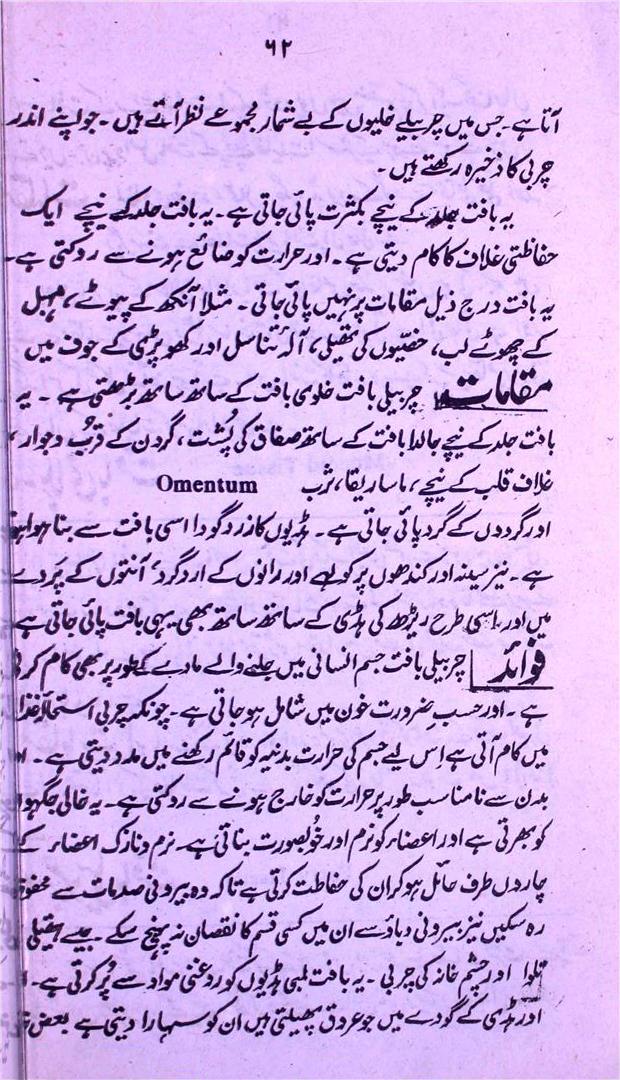 ۶۲
آتا ہے ۔ جس میں چربیلے خلیوں کے بے شمار مجموعے نظر آتے ہیں ۔ جو اپنے اندر
چربی کا ذخیرہ رکھتے ہیں ۔
یہ بافت جلد کے نیچے بکثرت پائی جاتی ہے ۔ یہ بافت جلد کے نیچے ایک
حفاظتی غلاف کا کام دیتی ہے ۔ اور حرارت کو ضائع ہونے سے روکتی ہے ۔
یہ بافت درج ذیل مقامات پر نہیں پائی جاتی ۔ مثلاً آنکھ کے پپوٹے ، مہبل
کے چھوٹے لب ، خصیوں کی تھیلی ، آلۂ تناسل اور کھوپڑی کے جوف میں
مقامات چربیلی بافت خلوی بافت کے ساتھ ساتھ بڑھتی ہے ۔ یہ
بافت جلد کے نیچے جالدار بافت کے ساتھ صفاق کی پُشت ، گردن کے قرب وجوار ،
غلاف قلب کے نیچے ، ماساریقا ، ثرب Omentum
اور گردوں کے گرد پائی جاتی ہے ۔ ہڈیوں کا زرد گودا اسی بافت سے بنا ہوا
ہے ۔ نیز سینہ اور کندھوں پر کولہے اور رانوں کے اردگرد ، آنتوں کے پردے
میں اور اسی طرح ریڑھ کی ہڈی کے ساتھ ساتھ بھی یہی بافت پائی جاتی ہے
فوائد چربیلی بافت جسم انسانی میں جلنے والے مادے کے طور پر بھی کام کرتی
ہے ۔ اور حسب ضرورت خون میں شامل ہو جاتی ہے ۔ چونکہ چربی استحالۂ غذا
میں کام آتی ہے اِس لیے جسم کی حرارت بدنیہ کو قائم رکھنے میں مدد دیتی ہے ۔
بدن سے نامناسب طور پر حرارت کو خارج ہونے سے روکتی ہے ۔ یہ خالی جگہوں
کو بھرتی ہے اور اعضاء کو نرم اور خُوبصورت بناتی ہے ۔ نرم و نازک اعضاء کے
چاروں طرف حائل ہو کر ان کی حفاظت کرتی ہے تاکہ وہ بیرونی صدمات سے محفوظ
رہ سکیں نیز بیرونی دباؤ سے ان میں کسی قسم کا نقصان نہ پہنچ سکے ۔ جیسے ہتھیلی
تلوا اور چشم خانہ کی چربی ۔ یہ بافت لمبی ہڈیوں کو روغنی مواد سے پُر کرتی ہے ۔
اور ہڈی کے گودے میں جو عروق پھیلتی ہیں ان کو سہارا دیتی ہے بعض